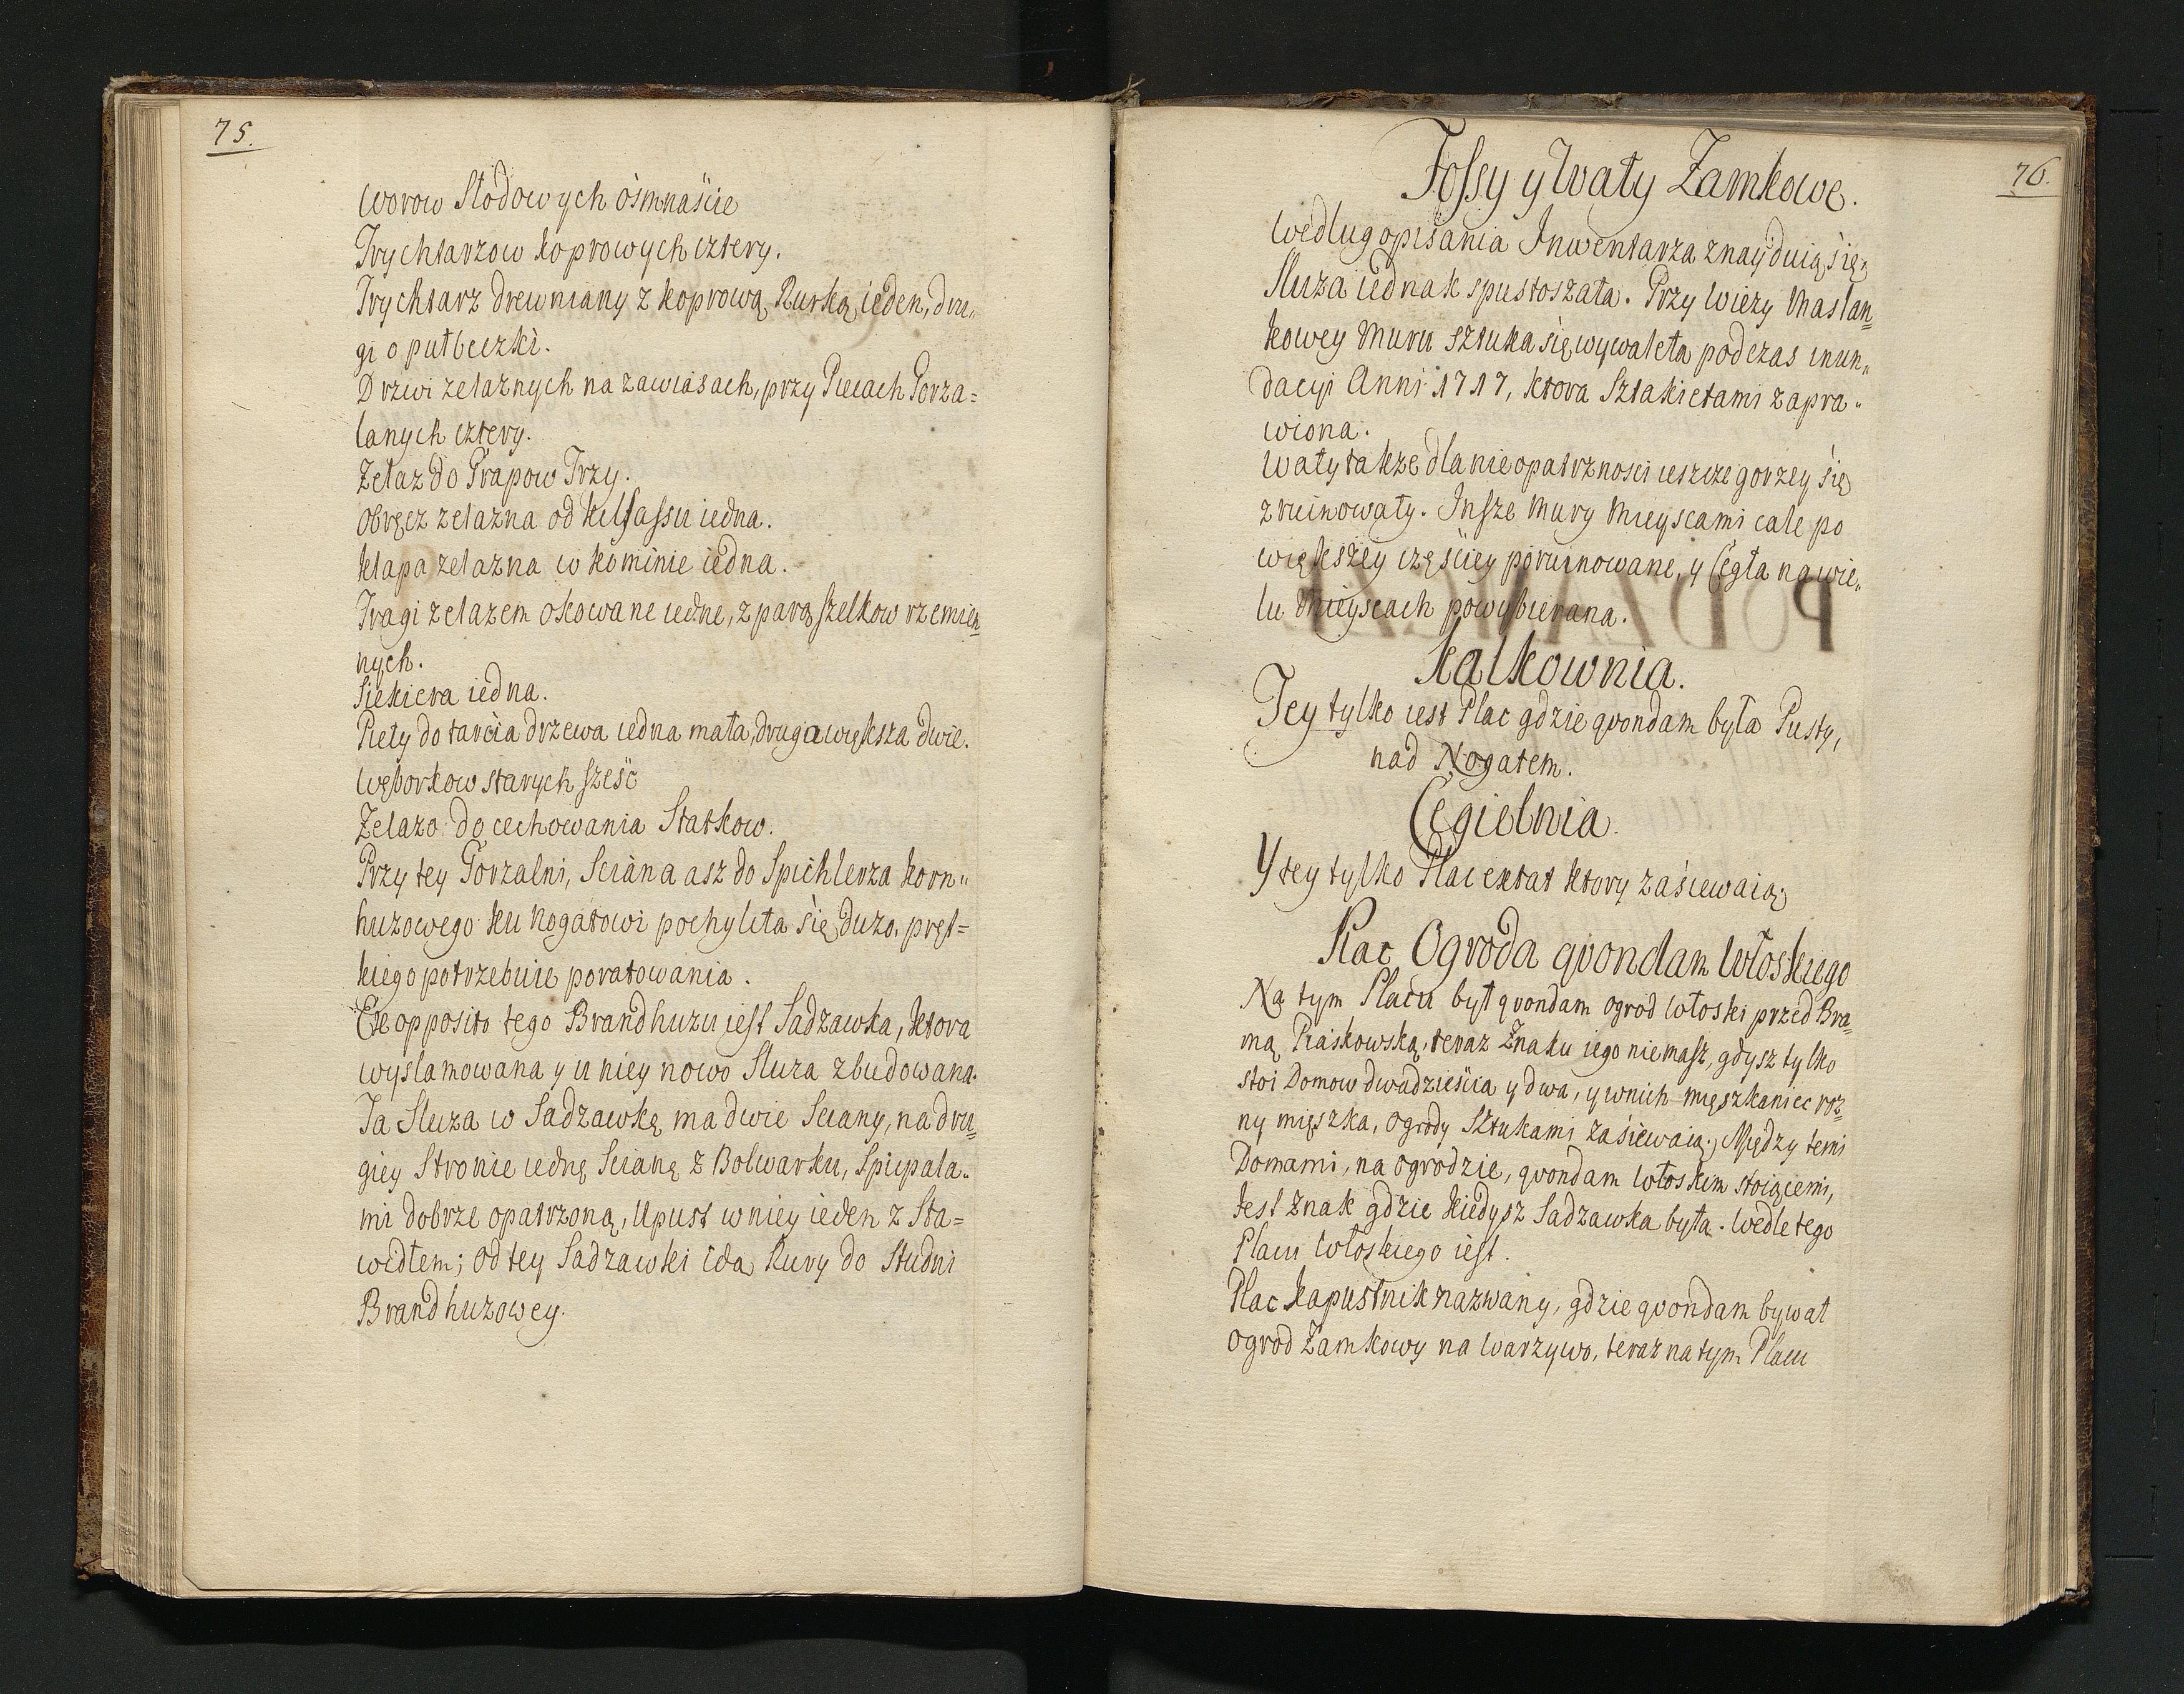 75.
Worow Słodowych ośmnaście
Trychtarzow koprowych cztery.
Trychtarz drewniany z koprową Rurką ieden, dru„
gi o puł beczki.
Drzwi zelaznych na zawiasach, przy Piecach Gorza=
lanych cztery.
Zelaz do Grapow Trzy.
Obręcz zelazna od Kilfassu iedna.
Klapa zelazna w kominie iedna.
Tragi zelazem okowane iedne, z parą szelkow rzemien
nych.
Siekiera iedna.
Piły do tarcia drzewa iedna mała, druga większa dwie.
Węborkow starych sześć
Zelazo do cechowania Statkow.
Przy tey Gorzalni, Sciana asz do Spichlerza Korn„
huzowego ku Nogatowi pochyliła się duzo, pręt=
kiego potrzebuie poratowania.
Ex opposito tego Brandhuzu iest Sadzawka, ktora
wyslamowana y u niey nowo Sluza zbudowana.
Ta Sluza w Sadzawkę ma dwie Sciany, na dru=
giey Stronie iednę Scianę z Bolwarku, Spicpala„
mi dobrze opatrzoną, Upust w niey ieden z Sta=
widłem; od tey Sadzawki idą Rury do Studni
Brandhuzowey.
76.
Fossy y Wały Zamkowe.
Według opisania Inwentarza znayduią się,
Sluza iednak spustoszała. Przy Wiezy Maslan=
kowey Muru sztuka się wywaleła podczas inun„
dacyi Anni 1717, ktora Sztakietami zapra„
wiona.
Wały takze dla nieopatrznosci ieszcze gorzey się
zruinowały. Insze Mury Mieyscami cale po
większey częściey poruinowane, y Cegła na wie„
lu Mieyscach powybierana.
Kalkownia.
Tey tylko iest Plac gdzie qvondam była Pusty,
nad Nogatem.
Cegielnia.
Y tey tylko Plac extat ktory zasiewaią,
Plac Ogroda qvondam Włoskiego
Na tym Placu był qvondam ogrod Włoski przed Bra=
mą Piaskowską, teraz Znaku iego niemasz, gdysz tylko
stoi Domow dwadzieścia y dwa, y wnich mięszkaniec roz=
ny mięszka, ogrody Sztukami zasiewaią, Między temi
Domami, na ogrodzie, qvondam Włoskim stoiącemi,
Iest Znak gdzie kiedysz Sadzawka była. Wedle tego
Placu Włoskiego iest.
Plac Kapustnik nazwany, gdzie qvondam bywał
ogrod Zamkowy na Warzywo, teraz na tym Placu